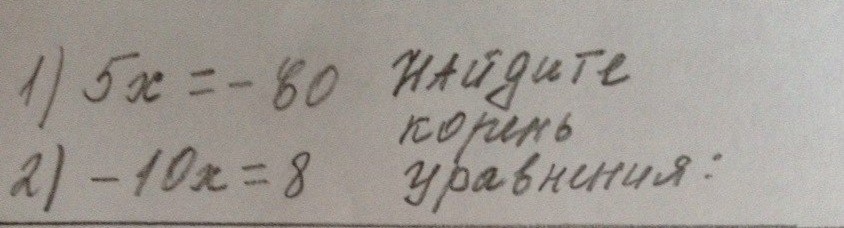 1) 5x = - 60 найдите
корень
2) - 10x = 8 уравнения: